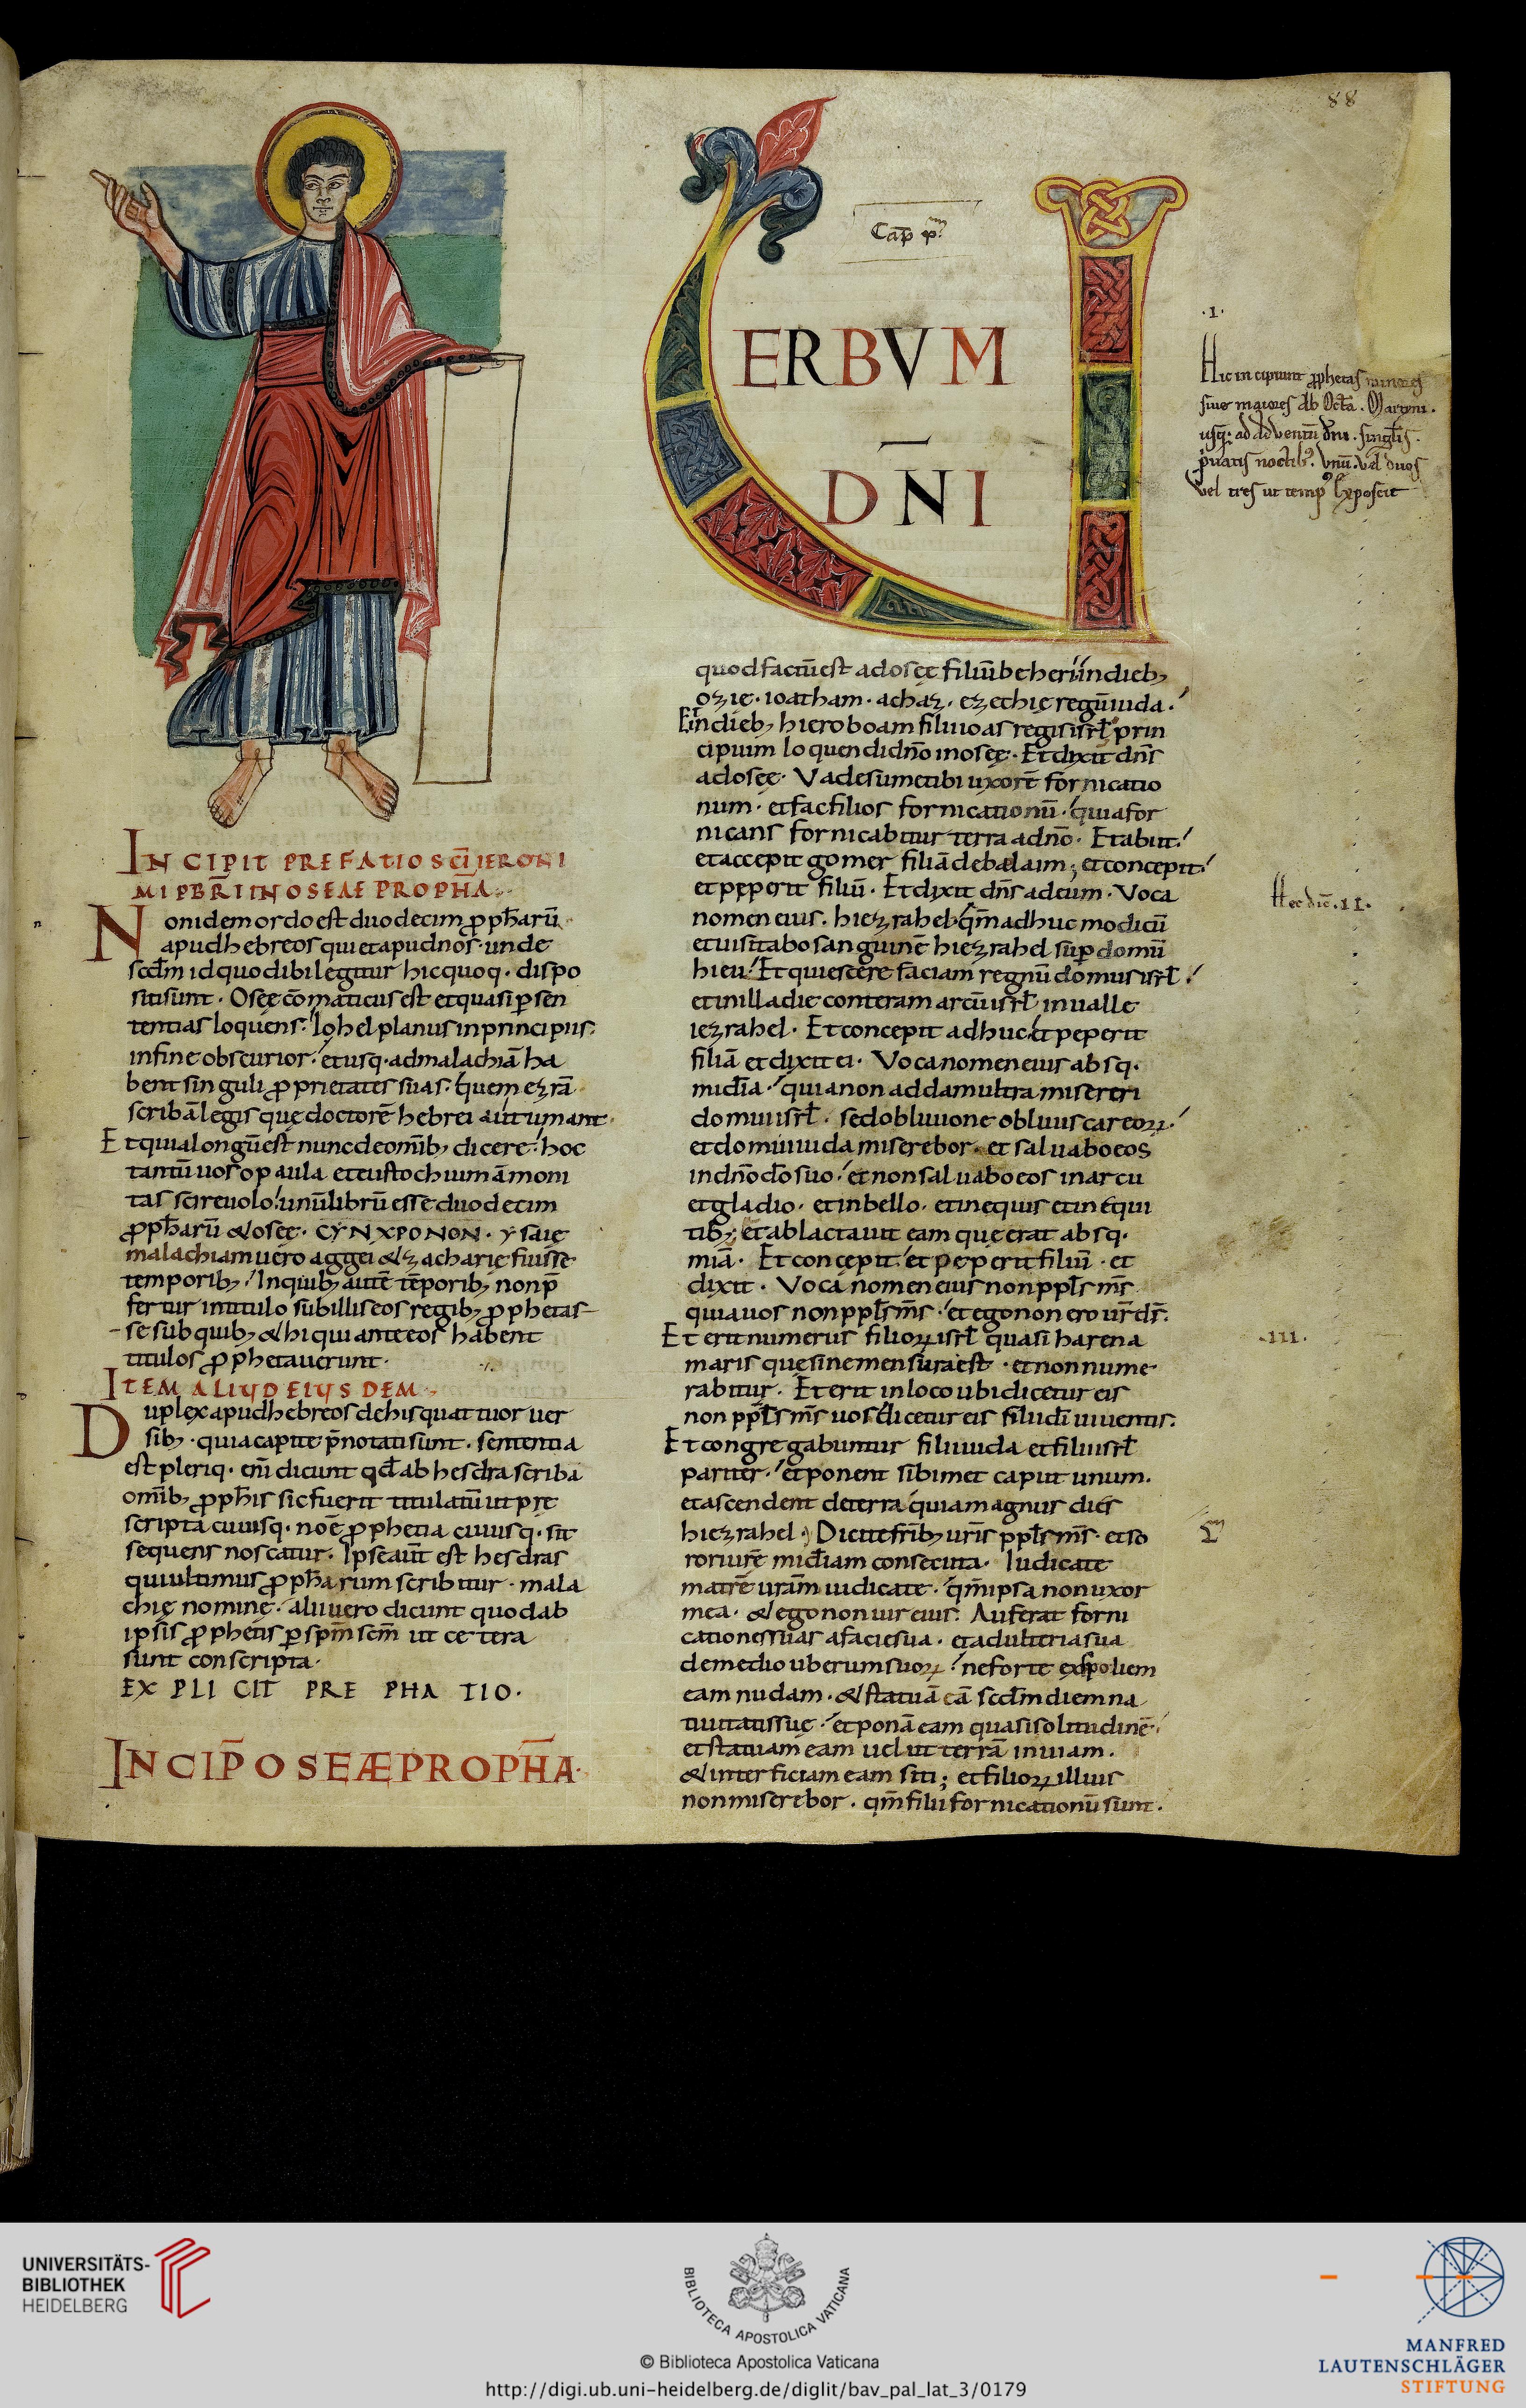 88
INCIPIT PREFATIO SC̄I IERONI
MI PBR̄I IN OSEAE PROPH̄A
Non idem ordo est duodecim ꝓph̄arū
apud hebreos qui et apud nos. unde
scd̄m id quod ibi legitur hic quoq. dispo
siti sunt. Osee cōmaticus est et quasi ꝑ sen
tentias loquens. Iohel planus in principiis.
in fine obscurior. et usq. ad malachiā ha
bent singuli ꝓprietates suas. quem ezrā
scribā legis que doctorē hebrei autumant.
Et quia longū est nunc de omīb; dicere. hoc
tantū uos o paula et eustochium āmoni
tas scire uolo. unū librū esse duodecim
ꝓph̄arū & osee. CYNXPONON. ysaie
malachiam uero aggei & zacharie fuisse
temporib; In quib; autē tēporib; non p̄
fertur in titulo sub illis eos regib; ꝓphetas
se sub quib; & hi qui ante eos habent
titulos ꝓphetauerunt.
ITEM ALIUD EIUSDEM
Duplex apud hebreos de his quattuor uer
sib; . quia capite p̄notati sunt. sententia
est pleriq. eni dicunt qd̄ ab hesdra scriba
omīb; ꝓph̄is sic fuerit titulatū ut pre
scripta cuiusq. noē ꝓphetia cuiusq. sit
sequens noscatur. Ipse aut̄ est hesdras
qui ultimus ꝓph̄arum scribitur. mala
chie nomine. alii uero dicunt quod ab
ipsis ꝓphetis ꝑ sp̄m sc̄m ut cetera
sunt conscripta.
EXPLICIT PREPHATIO.
INCIP̄ OSEÆ PROPH̄A.
Cap̄ p.m
VERBVM
D̄NI
quod factū est ad osee filiū beheri in dieb;
ozie. ioatham. achaz. ezechie regū iuda.
Et in dieb; hieroboam filii ioas regis isrł prin
cipium loquendi dn̄o in osee. Et dixit dn̄s
ad osee. Vade sume tibi uxorē fornicatio
num. et fac filios fornicationū. quia for
nicans fornicabitur terra a dn̄o. Et abiit.
et accepit gomer filiā debelaim; et concepit.
et peperit filiū. Et dixit dn̄s ad eum. Voca
nomen eius. hiezrahel. qm̄ adhuc modicū
et uisitabo sanguinē hiezrahel suꝑ domū
hieu. Et quiescere faciam regnū domus isrł.
et in illa die conteram arcū isrł in ualle
iezrahel. Et concepit adhuc. et peperit
filiā et dixit ei. Voca nomen eius absq.
mid̄ia. quia non addam ultra misereri
domui isrł. sed obliuione obliuiscar eoꝝ.
et domui iuda miserebor. et saluabo eos
in dn̄o dō suo. et non saluabo eos in arcu
et gladio. et in bello. et in equis et in equi
tib; et ablactauit eam que erat absq.
miā. Et concepit. et peperit filiū. et
dixit. Voca nomen eius non ppl̄s m̄s
quia uos non ppl̄s m̄s. et ego non ero ur̄ ds̄.
Et erit numerus filioꝝ isrł quasi harena
maris que sine mensura est. et non nume
rabitur. Et erit in loco ubi dicetur eis
non ppl̄s m̄s uos. dicetur eis filii dī uiuentis.
Et congregabuntur filii iuda et filii isrł
pariter. et ponent sibimet caput unum.
et ascendent de terra quia magnus dies
hiezrahel. Dicite frīb; ur̄is ppl̄s m̄s. et so
rori ur̄ē mid̄iam consecuta. Iudicate
matrē ur̄am iudicate. qm̄ ipsa non uxor
mea. & ego non uir eius. Auferat forni
cationes suas a facie sua. et adulteria sua
de medio uberum suoꝝ. ne forte exspoliem
eam nudam. & statuā eā scd̄m diem na
tiuitatis sue. et ponā eam quasi solitudinē.
et statuam eam uelut terrā inuiam.
& interficiam eam siti; et filioꝝ illius
non miserebor. qm̄ filii fornicationū sunt.
.1.
Hic incipiunt ꝓphetas minores
siue maiores ab Oct̄a. Martini.
usq; ad aduentū dn̄i. singl̄is.
p̱uatis noctib;. unū. vel duos
vel tres ut temp; exposcit
Hec dic̄. 11.
.111.
UNIVERSITÄTS-
BIBLIOTHEK
HEIDELBERG
BIBLIOTECA APOSTOLICA VATICANA
© Biblioteca Apostolica Vaticana
http://digi.ub.uni-heidelberg.de/diglit/bav_pal_lat_3/0179
MANFRED
LAUTENSCHLÄGER
STIFTUNG